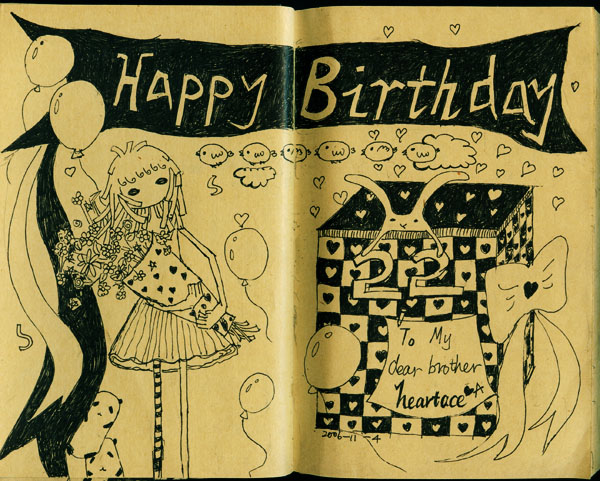 Happy Birthday
22
To My
dear brother
heartace
2006-11-4